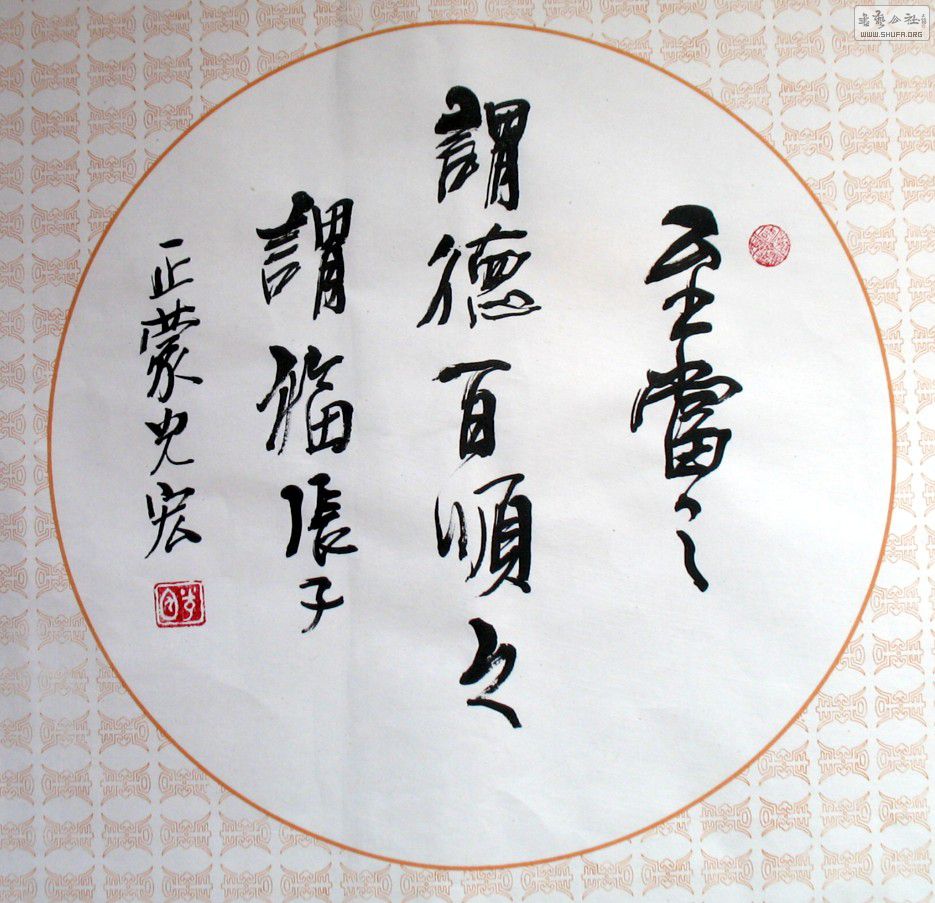 至當之
謂德百順之
謂福張子
正蒙光宏
WWW.SHUFA.ORG